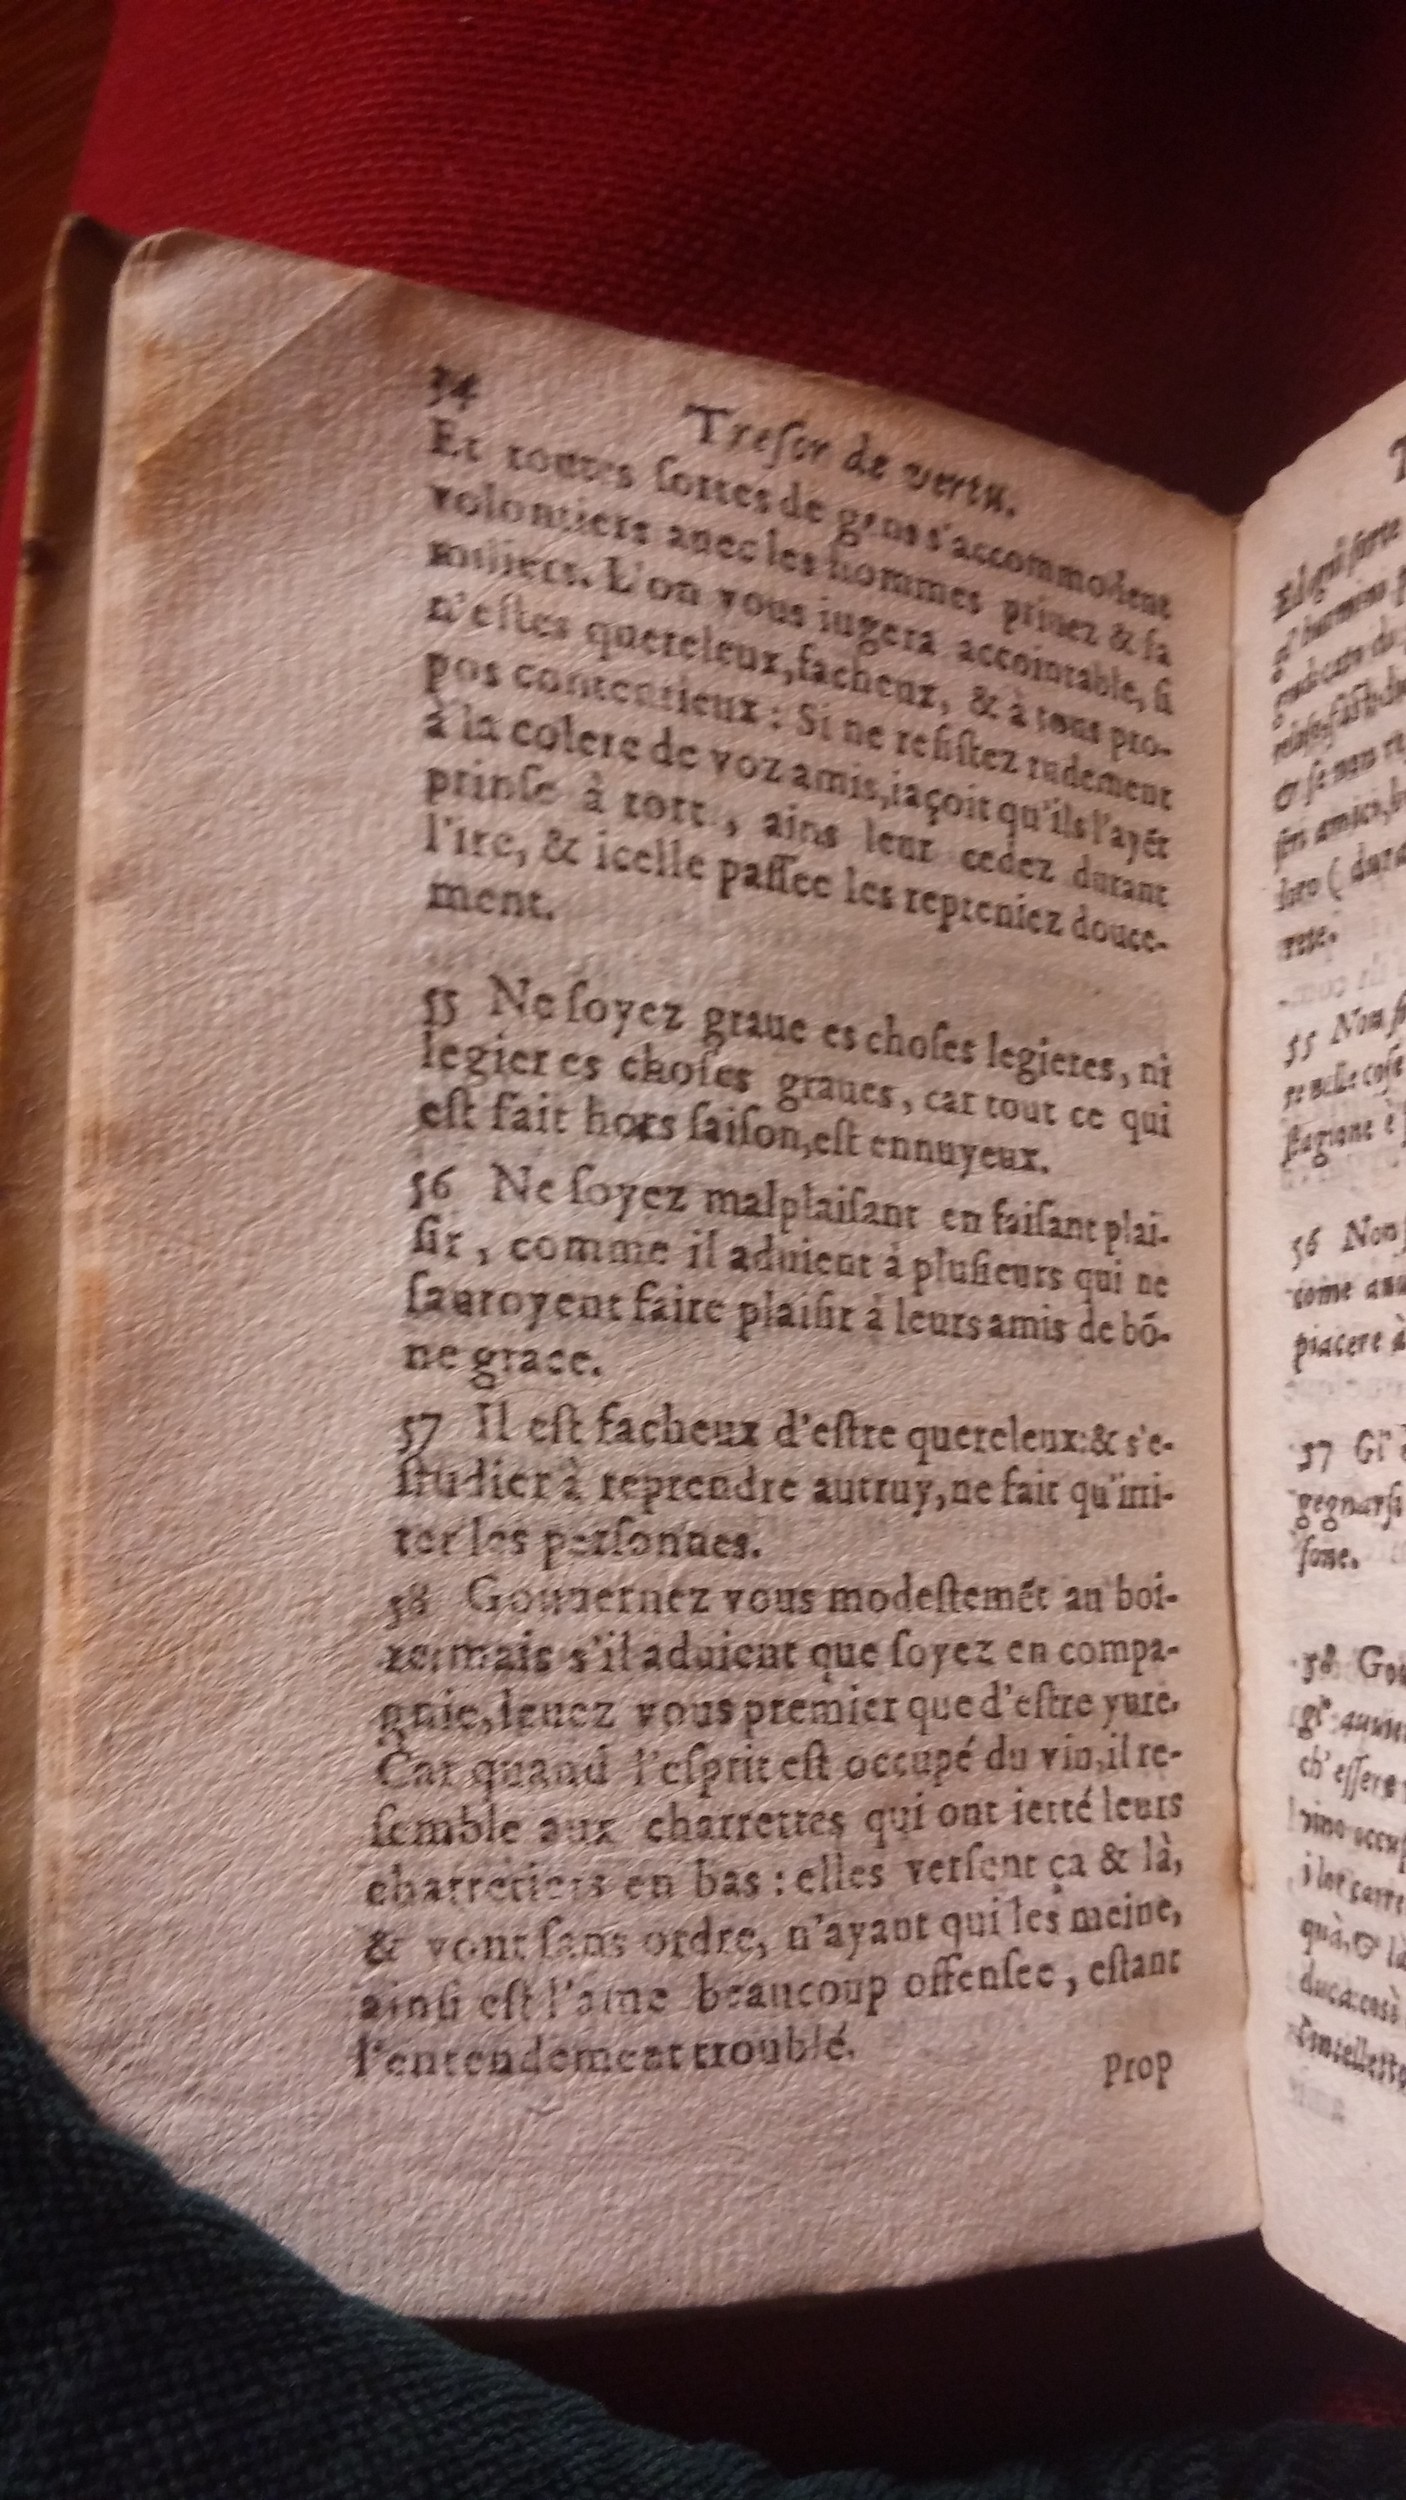 34 Treſor de vertu.
Et toutes ſortes de gens s'accommodent
volontiers auec les hommes priuez & fa
milliers. L'on vous iugera accointable, ſi
n'eſtes quereleux, facheux, & à tous pro-
pos contentieux : Si ne reſiſtez rudement
à la colere de voz amis, iaçoit qu'ils l'ayẽt
prinſe à tort , ains leur cedez durant
l'ire, & icelle paſſee les repreniez douce-
ment.
55 Ne ſoyez graue es choſes legieres, ni
legier es choſes graues, car tout ce qui
eſt fait hors ſaiſon, eſt ennuyeux.
56 Ne ſoyez malplaiſant en faiſant plai-
ſir , comme il aduient à pluſieurs qui ne
ſauroyent faire plaiſir à leurs amis de bõ-
ne grace.
57 Il eſt facheux d'eſtre quereleux: & s'e-
ſtudier à reprendre autruy, ne fait qu'irri-
ter les perſonnes.
58 Gouuernez vous modeſtemẽt au boi-
re: mais s'il aduient que ſoyez en compa-
gnie, leuez vous premier que d'eſtre yure.
Car quand l'eſprit eſt occupé du vin, il re-
ſemble aux charrettes qui ont ietté leurs
charretiers en bas : elles verſent ça & là,
& vont ſans ordre, n'ayant qui les meine,
ainſi eſt l'ame beaucoup offenſee , eſtant
l'entendement troublé.
Prop
T
Ed ogni ſorte
rete.
55 Non
re nelle coſe
ſtagione è
56 Non
come
piacere à
57 Gl'
gegnarſi
ſone.
58 Go
ch' eſſere
vino occup
i lor carre
quà, & là
duca: cosi